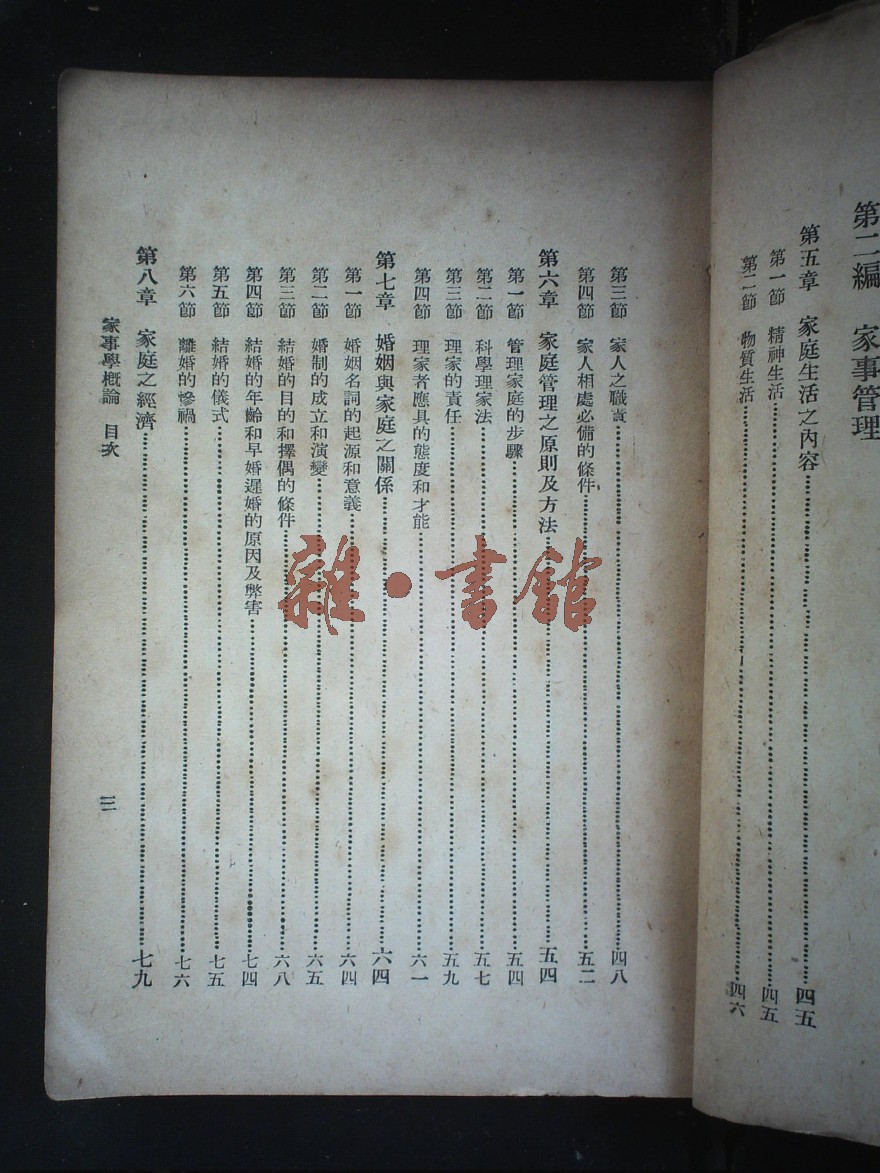 第二編 家事管理
第五章 家庭生活之內容……四五
第一節 精神生活……四五
第二節 物質生活……四六
第三節 家人之職責……四八
第四節 家人相處必備的條件……五二
第六章 家庭管理之原則及方法……五四
第一節 管理家庭的步驟……五四
第二節 科學理家法……五七
第三節 理家的責任……五九
第四節 理家者應具的態度和才能……六一
第七章 婚姻與家庭之關係……六四
第一節 婚姻名詞的起源和意義……六四
第二節 婚制的成立和演變……六五
第三節 結婚的目的和擇偶的條件……六八
第四節 結婚的年齡和早婚遲婚的原因及弊害……七四
第五節 結婚的儀式……七五
第六節 離婚的慘禍……七六
第八章 家庭之經濟……七九
家事學概論 目次
三
雜·書館